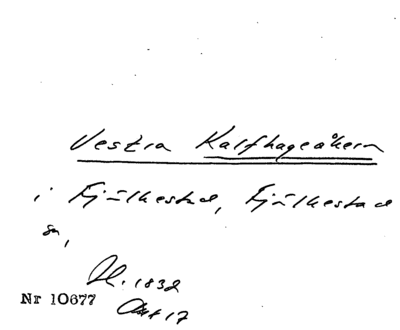 Vestra Kalfhageåkern
i Fjälkestad, Fjälkestad
sn,
H. 1832
Nr 10677
Akt 17